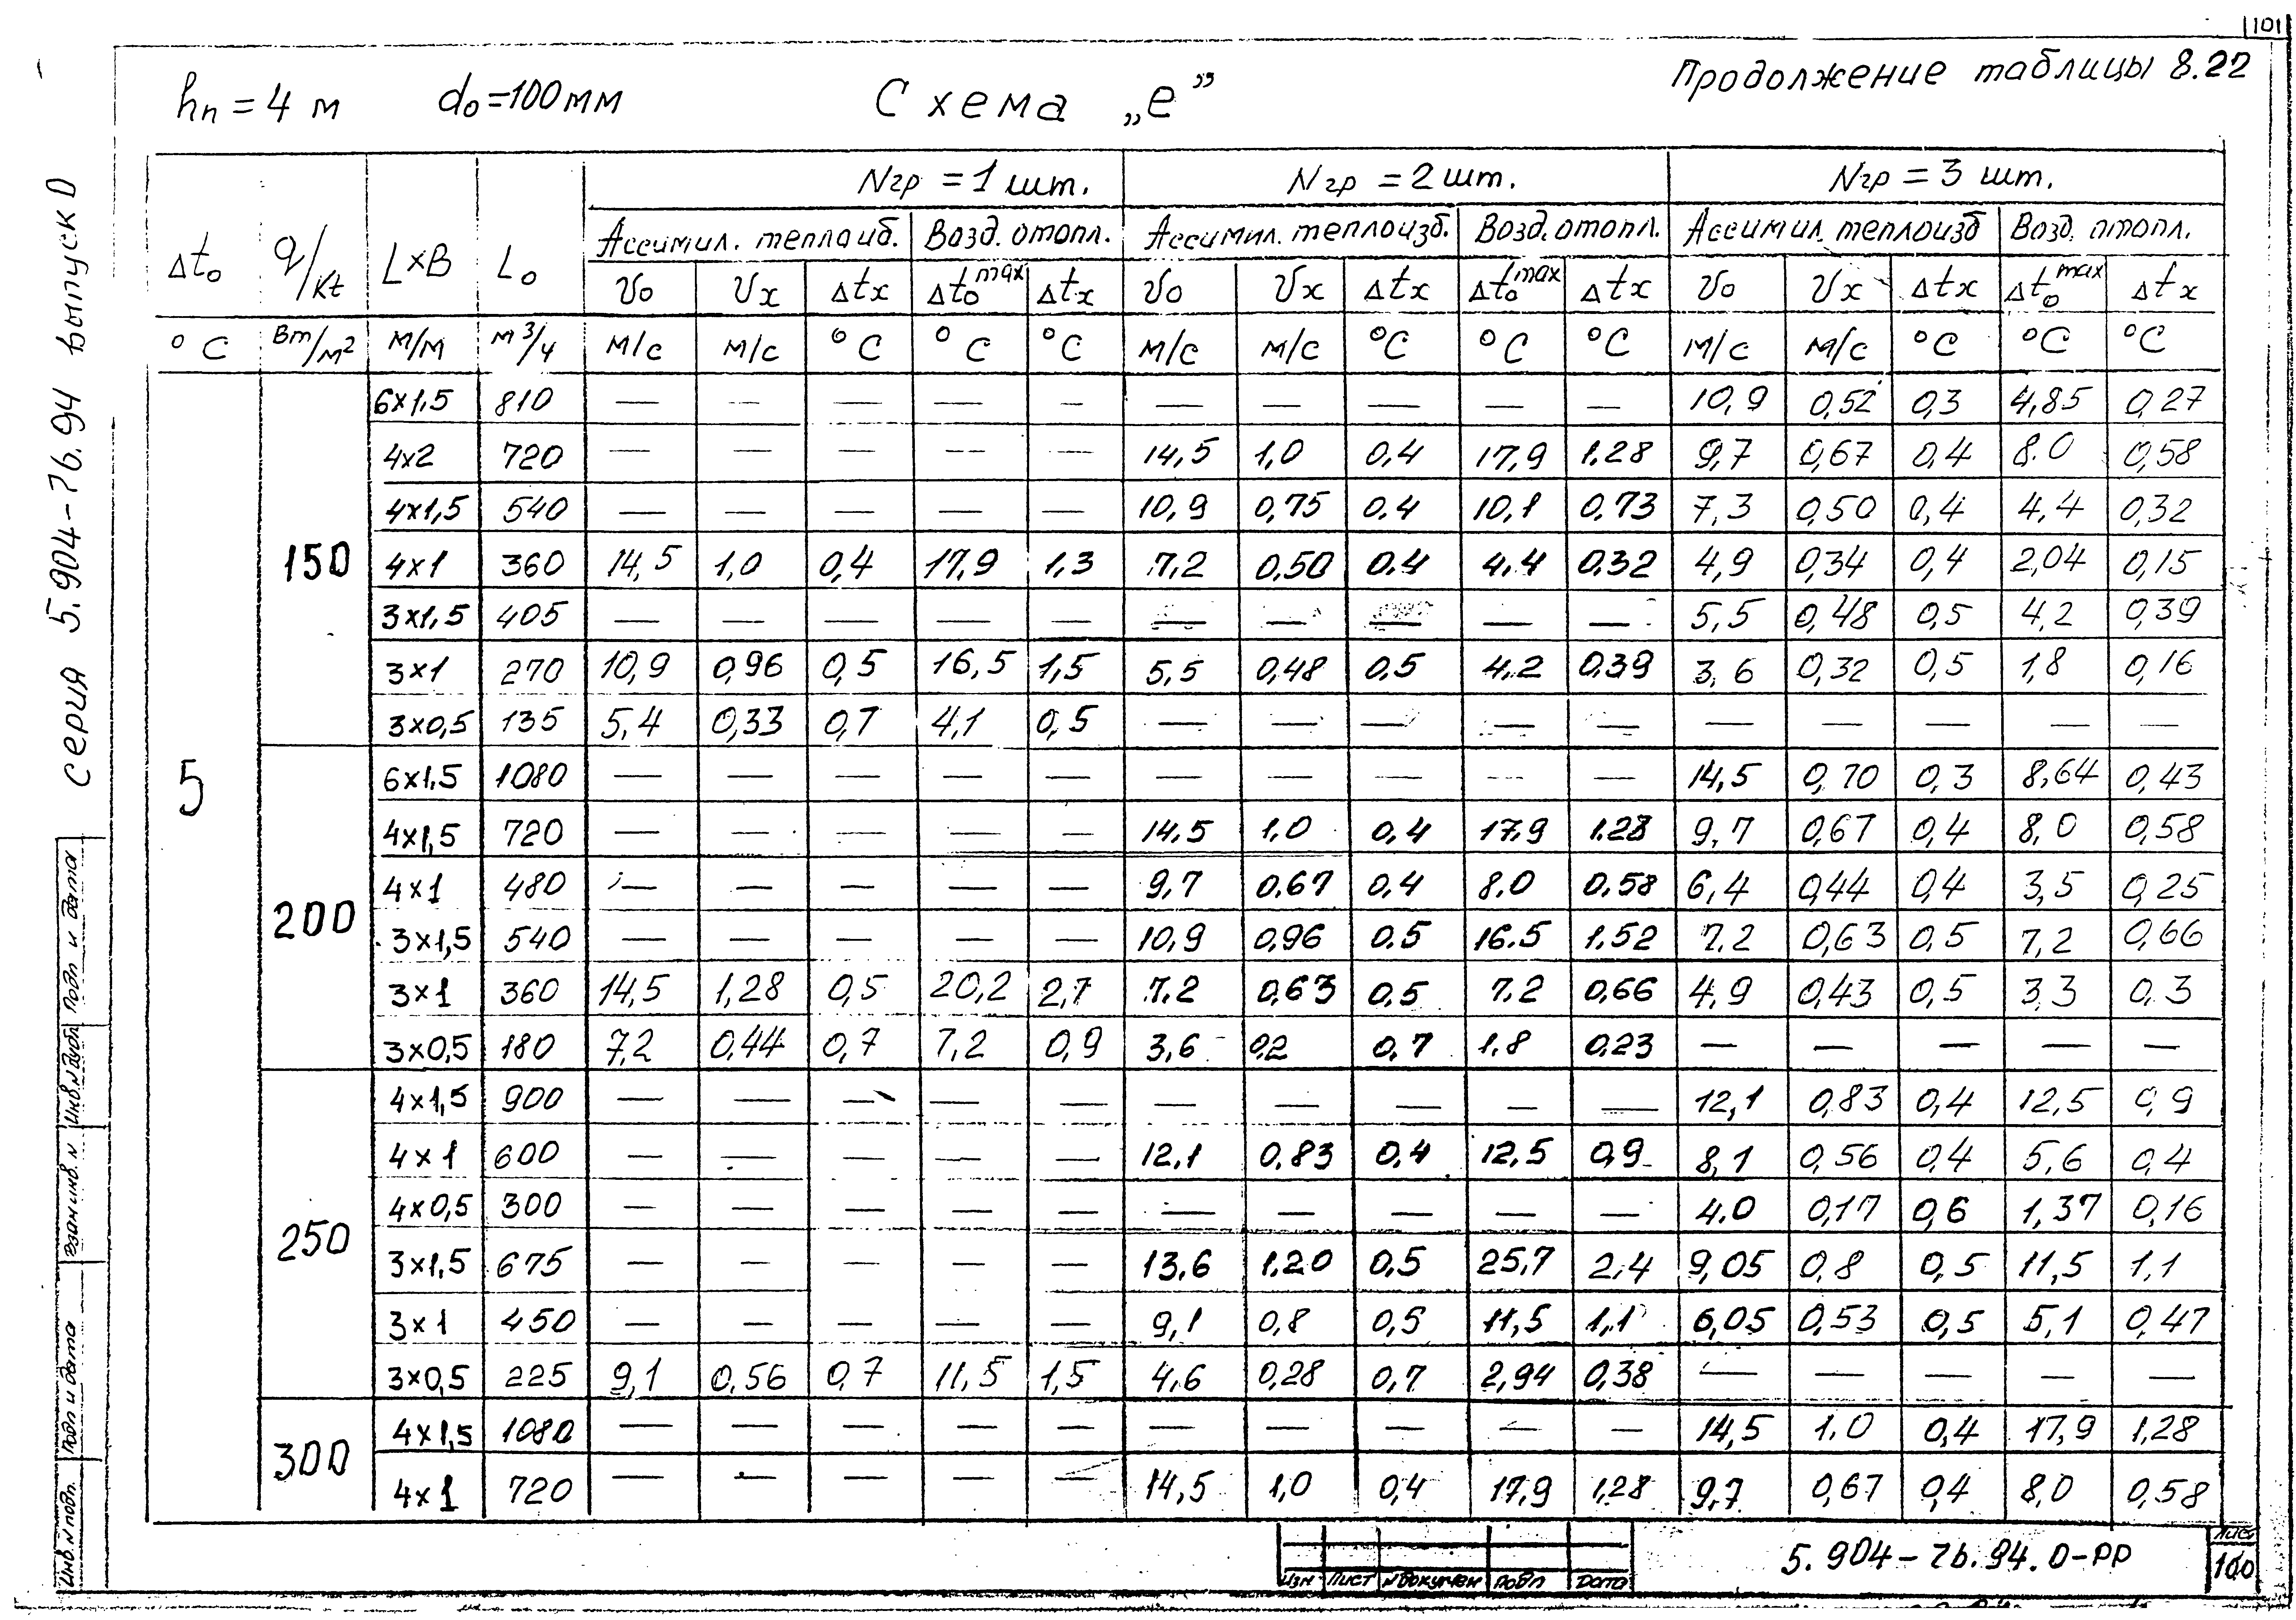 101
Продолжение таблицы 8.22
hп = 4 м   do = 100 мм   Схема „е"
Δto | q/Kt | L×B | Lo | Nгр = 1 шт. | Nгр = 2 шт. | Nгр = 3 шт.
Ассимил. теплоиб. | Возд. отопл. | Ассимил. теплоизб. | Возд. отопл. | Ассимил. теплоизб | Возд. отопл.
υo | υx | Δtx | Δto max | Δtx | υo | υx | Δtx | Δto max | Δtx | υo | υx | Δtx | Δto max | Δtx
°С | Вт/м² | м/м | м³/ч | м/с | м/с | °С | °С | °С | м/с | м/с | °С | °С | °С | м/с | м/с | °С | °С | °С
5
150
6×1,5 | 810 | — | — | — | — | — | — | — | — | — | — | 10,9 | 0,52 | 0,3 | 4,85 | 0,27
4×2 | 720 | — | — | — | — | — | 14,5 | 1,0 | 0,4 | 17,9 | 1.28 | 9,7 | 0,67 | 0,4 | 8.0 | 0,58
4×1,5 | 540 | — | — | — | — | — | 10,9 | 0,75 | 0.4 | 10,1 | 0,73 | 7,3 | 0,50 | 0,4 | 4,4 | 0,32
4×1 | 360 | 14,5 | 1,0 | 0,4 | 17,9 | 1,3 | 7,2 | 0,50 | 0,4 | 4,4 | 0,32 | 4,9 | 0,34 | 0,4 | 2,04 | 0,15
3×1,5 | 405 | — | — | — | — | — | — | — | — | — | — | 5,5 | 0,48 | 0,5 | 4,2 | 0,39
3×1 | 270 | 10,9 | 0,96 | 0,5 | 16,5 | 1,5 | 5,5 | 0,48 | 0,5 | 4.2 | 0,39 | 3,6 | 0,32 | 0,5 | 1,8 | 0,16
3×0,5 | 135 | 5,4 | 0,33 | 0,7 | 4,1 | 0,5 | — | — | — | — | — | — | — | — | — | —
200
6×1,5 | 1080 | — | — | — | — | — | — | — | — | — | — | 14,5 | 0,70 | 0,3 | 8,64 | 0,43
4×1,5 | 720 | — | — | — | — | — | 14,5 | 1.0 | 0,4 | 17,9 | 1.28 | 9,7 | 0,67 | 0,4 | 8,0 | 0,58
4×1 | 480 | — | — | — | — | — | 9,7 | 0,67 | 0,4 | 8.0 | 0,58 | 6,4 | 0,44 | 0,4 | 3,5 | 0,25
3×1,5 | 540 | — | — | — | — | — | 10,9 | 0,96 | 0.5 | 16.5 | 1.52 | 7.2 | 0,63 | 0,5 | 7,2 | 0,66
3×1 | 360 | 14,5 | 1,28 | 0,5 | 20,2 | 2,7 | 7.2 | 0,63 | 0,5 | 7.2 | 0,66 | 4,9 | 0,43 | 0,5 | 3,3 | 0,3
3×0,5 | 180 | 7,2 | 0,44 | 0,7 | 7,2 | 0,9 | 3,6 | 0,2 | 0,7 | 1.8 | 0,23 | — | — | — | — | —
250
4×1,5 | 900 | — | — | — | — | — | — | — | — | — | — | 12,1 | 0,83 | 0,4 | 12,5 | 0,9
4×1 | 600 | — | — | — | — | — | 12,1 | 0,83 | 0,4 | 12,5 | 0,9 | 8,1 | 0,56 | 0,4 | 5,6 | 0,4
4×0,5 | 300 | — | — | — | — | — | — | — | — | — | — | 4.0 | 0,17 | 0,6 | 1,37 | 0,16
3×1,5 | 675 | — | — | — | — | — | 13,6 | 1.20 | 0,5 | 25,7 | 2,4 | 9,05 | 0,8 | 0,5 | 11,5 | 1,1
3×1 | 450 | — | — | — | — | — | 9,1 | 0,8 | 0,5 | 11,5 | 1,1 | 6,05 | 0,53 | 0,5 | 5,1 | 0,47
3×0,5 | 225 | 9,1 | 0,56 | 0,7 | 11,5 | 1,5 | 4,6 | 0,28 | 0,7 | 2,94 | 0,38 | — | — | — | — | —
300
4×1,5 | 1080 | — | — | — | — | — | — | — | — | — | — | 14,5 | 1,0 | 0,4 | 17,9 | 1,28
4×1 | 720 | — | — | — | — | — | 14,5 | 1,0 | 0,4 | 17,9 | 1,28 | 9,7 | 0,67 | 0,4 | 8,0 | 0,58
серия 5.904-76.94 выпуск 0
Инв.№подл. | Подп и дата | Взам инв. № | Инв.№дубл | Подп и дата
Изм | Лист | №докумен | Подп | Дата
5.904-76.94.0-РР
Лист
100